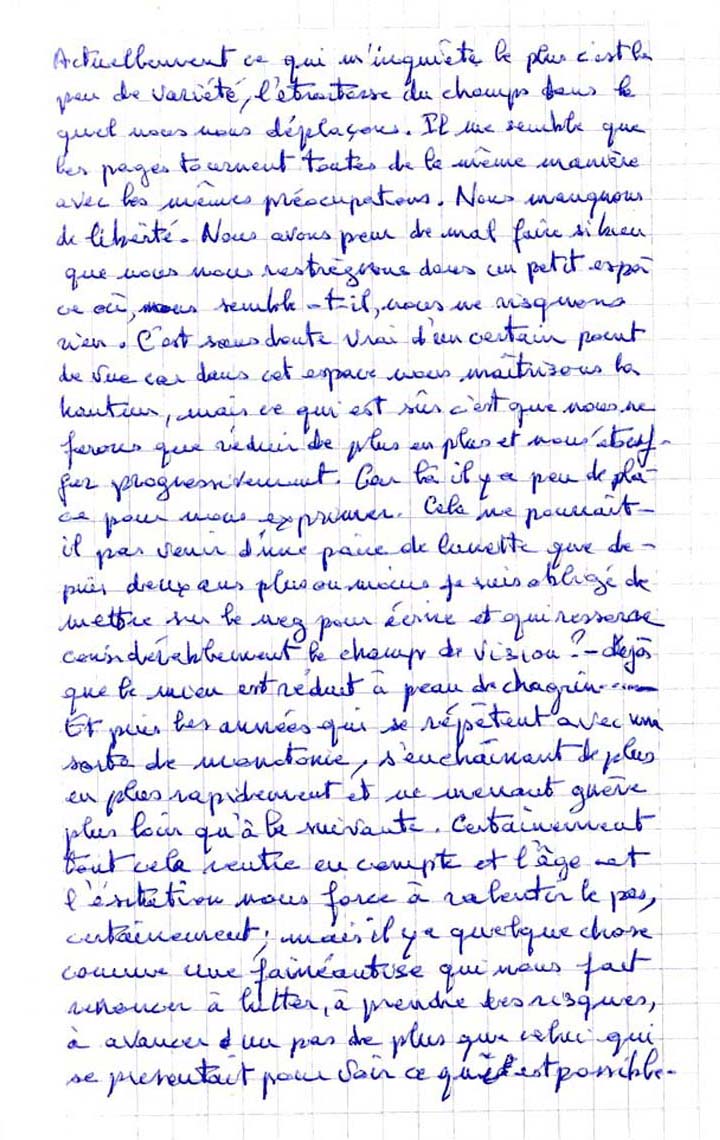 Actuellement ce qui m'inquiète le plus c'est le
peu de variété, l'étroitesse du champs dans le
quel nous nous déplaçons. Il me semble que
les pages tournent toutes de la même manière
avec les mêmes préocupations. Nous manquons
de liberté. Nous avons peur de mal faire si bien
que nous nous restrégnons dans un petit espa
ce où, nous semble-t-il, nous ne risquons
rien. C'est sans doute vrai d'un certain point
de vue car dans cet espace nous maîtrisons la
hauteur, mais ce qui est sûr c'est que nous ne
ferons que réduire de plus en plus et nous
progressivement. Car là il y a peu de pla
ce pour nous exprimer. Cela ne pourrait-
il pas venir d'une paire de lunette que de-
puis deux ans plus ou moins je suis obligé de
mettre sur le nez pour écrire et qui resserre
considérablement le champ de vision ? - déjà
que le mien est réduit à peau de chagrin......
Et puis les années qui se répètent avec une
sorte de monotonie, s'enchaînant de plus
en plus rapidement et ne menant guère
plus loin qu'à la suivante. Certainement
tout cela rentre en compte et l'âge et
l'ésitation nous force à ralentir le pas,
certainement; mais il y a quelque chose
comme une fainéantise qui nous fait
renoncer à lutter, à prendre des risques,
à avancer d'un pas de plus que celui qui
se présentait pour voir ce qu'il est possible.